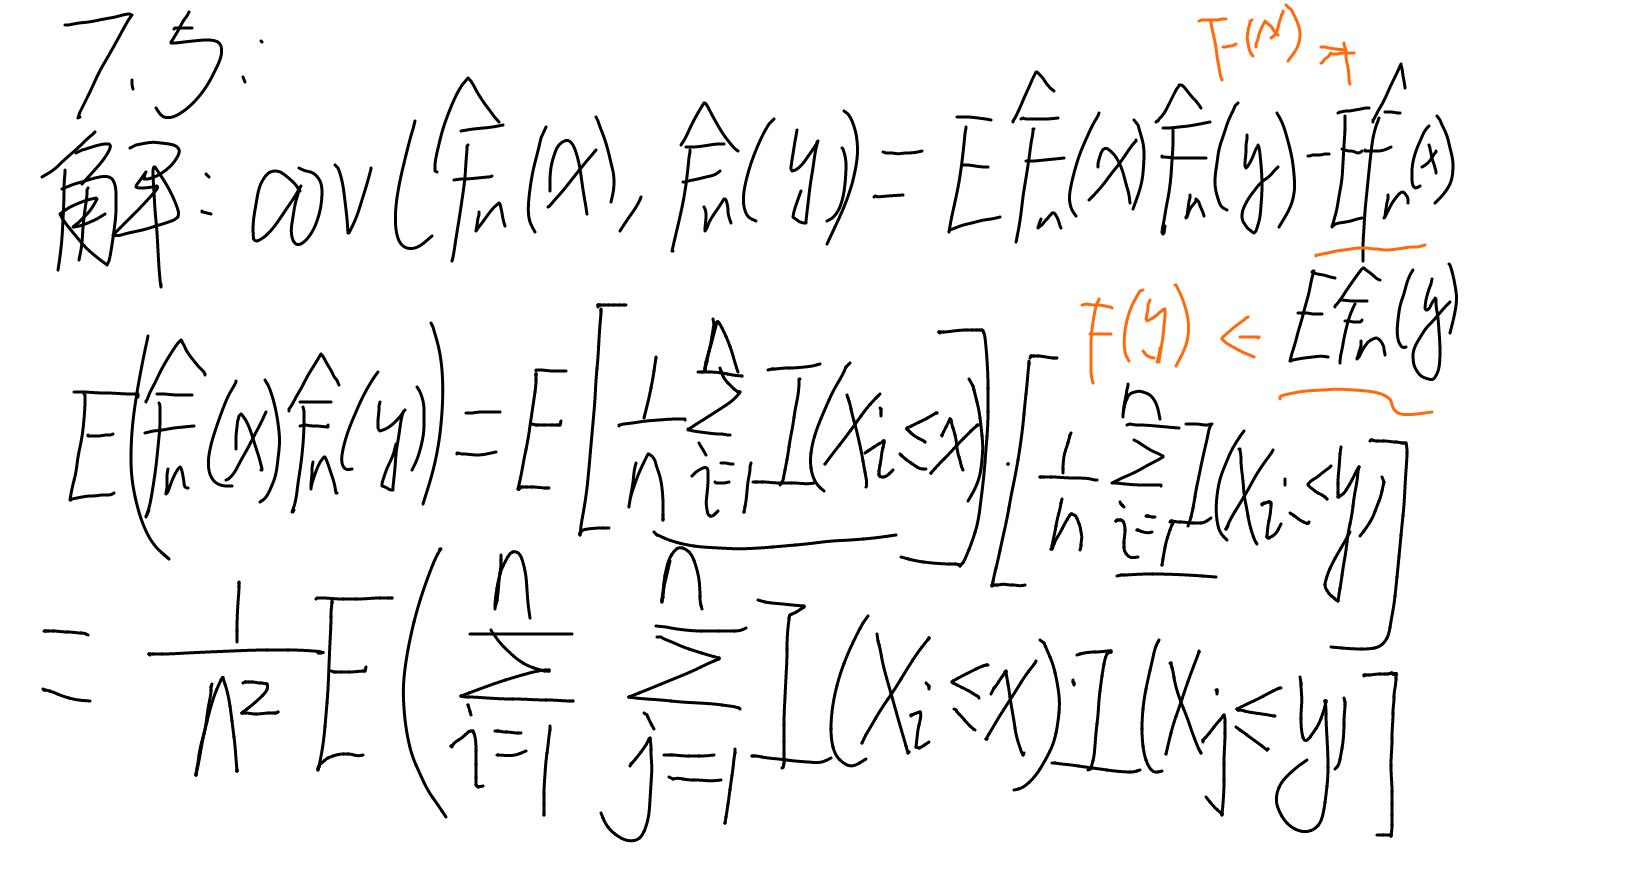 7.5:
F(x)
解: cov(F̂n(x), F̂n(y)) = E F̂n(x) F̂n(y) - E F̂n(x)
F(y) ← E F̂n(y)
E(F̂n(x) F̂n(y)) = E[1/n ∑_{i=1}^{n} I(Xi≤x)]·[1/n ∑_{i=1}^{n} I(Xi≤y)]
= 1/n² E(∑_{i=1}^{n} ∑_{j=1}^{n} I(Xi≤x)·I(Xj≤y)]